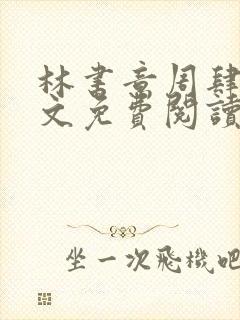 林書音周肆
文免費閱讀
坐一次飛機吧